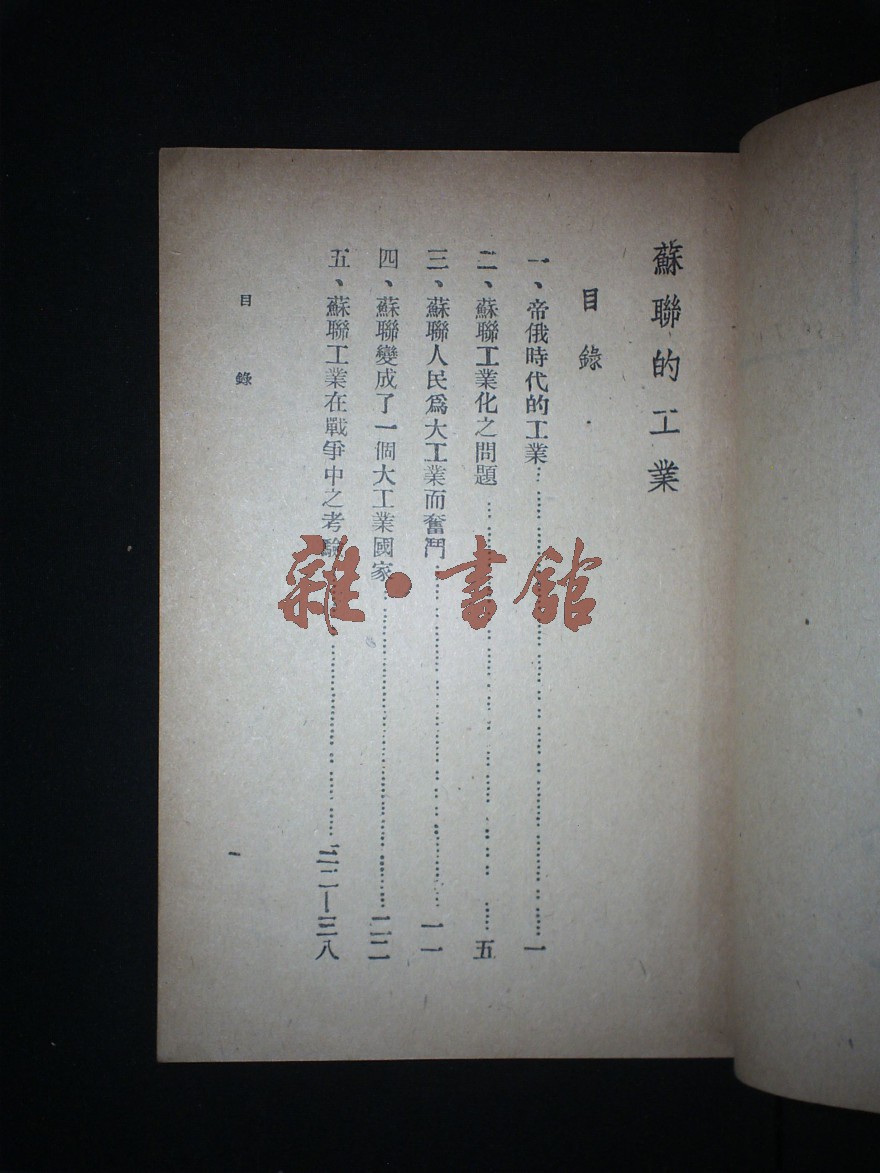 蘇聯的工業
目錄
一、帝俄時代的工業……一
二、蘇聯工業化之問題……五
三、蘇聯人民爲大工業而奮鬥……一一
四、蘇聯變成了一個大工業國家……二二
五、蘇聯工業在戰爭中之考驗……三二—三八
目錄
一
雜·書館